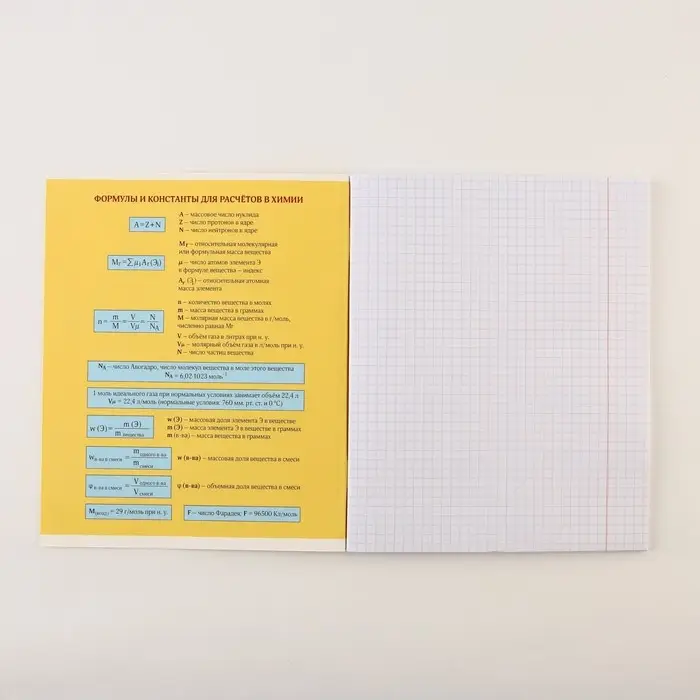 ФОРМУЛЫ И КОНСТАНТЫ ДЛЯ РАСЧЁТОВ В ХИМИИ
A=Z+N
A – массовое число нуклида
Z – число протонов в ядре
N – число нейтронов в ядре
Mr=∑μiAr(Эi)
Mr – относительная молекулярная
или формульная масса вещества
μ – число атомов элемента Э
в формуле вещества – индекс
Ar (Эi) – относительная атомная
масса элемента
n = m/M = V/Vμ = N/NA
n – количество вещества в молях
m – масса вещества в граммах
M – молярная масса вещества в г/моль,
численно равная Mr
V – объём газа в литрах при н. у.
Vμ – молярный объём газа в л/моль при н. у.
N – число частиц вещества
NA – число Авогадро, число молекул вещества в моле этого вещества
NA = 6,02·1023 моль-1
1 моль идеального газа при нормальных условиях занимает объём 22,4 л
Vμ = 22,4 л/моль (нормальные условия: 760 мм. рт. ст. и 0 °С)
w (Э) = m (Э) / m вещества
w (Э) – массовая доля элемента Э в веществе
m (Э) – масса элемента Э в веществе в граммах
m (в-ва) – масса вещества в граммах
w в-ва в смеси = m одного в-ва / m смеси
w (в-ва) – массовая доля вещества в смеси
φ в-ва в смеси = V одного в-ва / V смеси
φ (в-ва) – объемная доля вещества в смеси
M(возд.) = 29 г/моль при н. у.
F – число Фарадея; F = 96500 Кл/моль